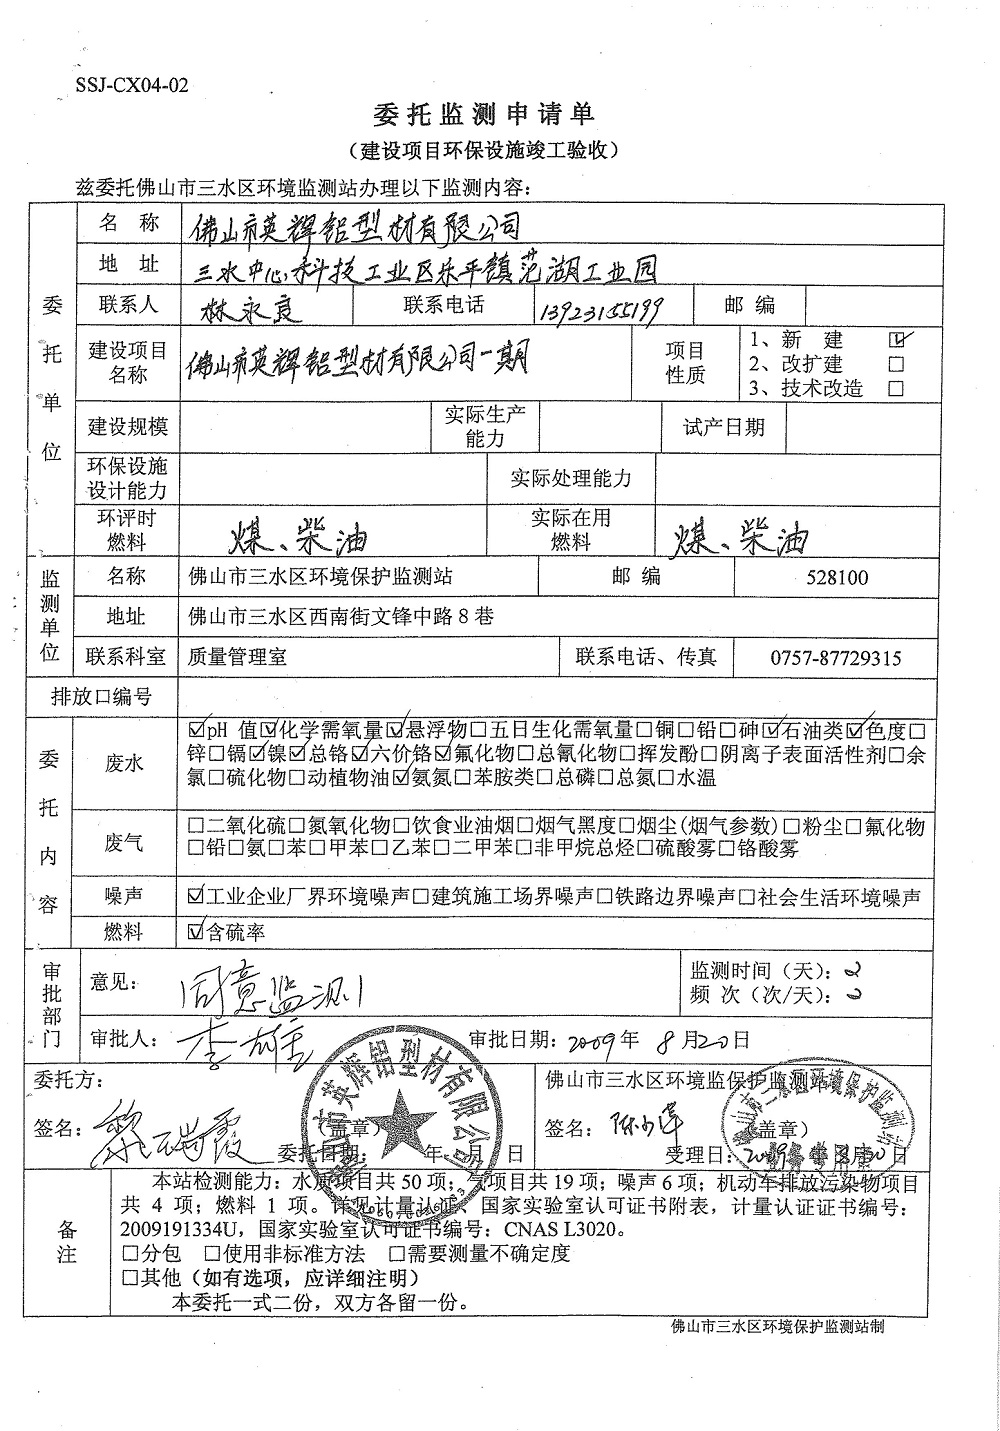 SSJ-CX04-02
委托监测申请单
（建设项目环保设施竣工验收）
兹委托佛山市三水区环境监测站办理以下监测内容：
委托单位
名 称 佛山市英辉铝型材有限公司
地 址 三水中心科技工业区乐平镇范湖工业园
联系人 林永良 联系电话 13923155199 邮 编
建设项目名称 佛山市英辉铝型材有限公司一期 项目性质 1、新 建 ☑
2、改扩建 □
3、技术改造 □
建设规模 实际生产能力 试产日期
环保设施设计能力 实际处理能力
环评时燃料 煤、柴油 实际在用燃料 煤、柴油
监测单位
名称 佛山市三水区环境保护监测站 邮 编 528100
地址 佛山市三水区西南街文锋中路8巷
联系科室 质量管理室 联系电话、传真 0757-87729315
排放口编号
委托内容
废水 ☑pH 值☑化学需氧量☑悬浮物□五日生化需氧量□铜□铅□砷☑石油类☑色度□
锌□镉☑镍☑总铬☑六价铬☑氟化物□总氰化物□挥发酚□阴离子表面活性剂□余
氯□硫化物□动植物油☑氨氮□苯胺类□总磷□总氮□水温
废气 □二氧化硫□氮氧化物□饮食业油烟□烟气黑度□烟尘(烟气参数)□粉尘□氟化物
□铅□氨□苯□甲苯□乙苯□二甲苯□非甲烷总烃□硫酸雾□铬酸雾
噪声 ☑工业企业厂界环境噪声□建筑施工场界噪声□铁路边界噪声□社会生活环境噪声
燃料 ☑含硫率
审批部门
意见： 同意监测 监测时间（天）：2
频 次（次/天）：2
审批人： 李雄 审批日期：2009年 8月20日
委托方： 佛山市三水区环境监保护监测站
签名： 黎瑞霞 （盖章） 签名： （盖章）
委托日期： 年 月 日 受理日：2009年8月20日
备注
本站检测能力：水质项目共50项；气项目共19项；噪声6项；机动车排放污染物项目
共4项；燃料1项。详见计量认证、国家实验室认可证书附表，计量认证证书编号：
2009191334U，国家实验室认可证书编号：CNAS L3020。
□分包 □使用非标准方法 □需要测量不确定度
□其他（如有选项，应详细注明）
本委托一式二份，双方各留一份。
佛山市三水区环境保护监测站制